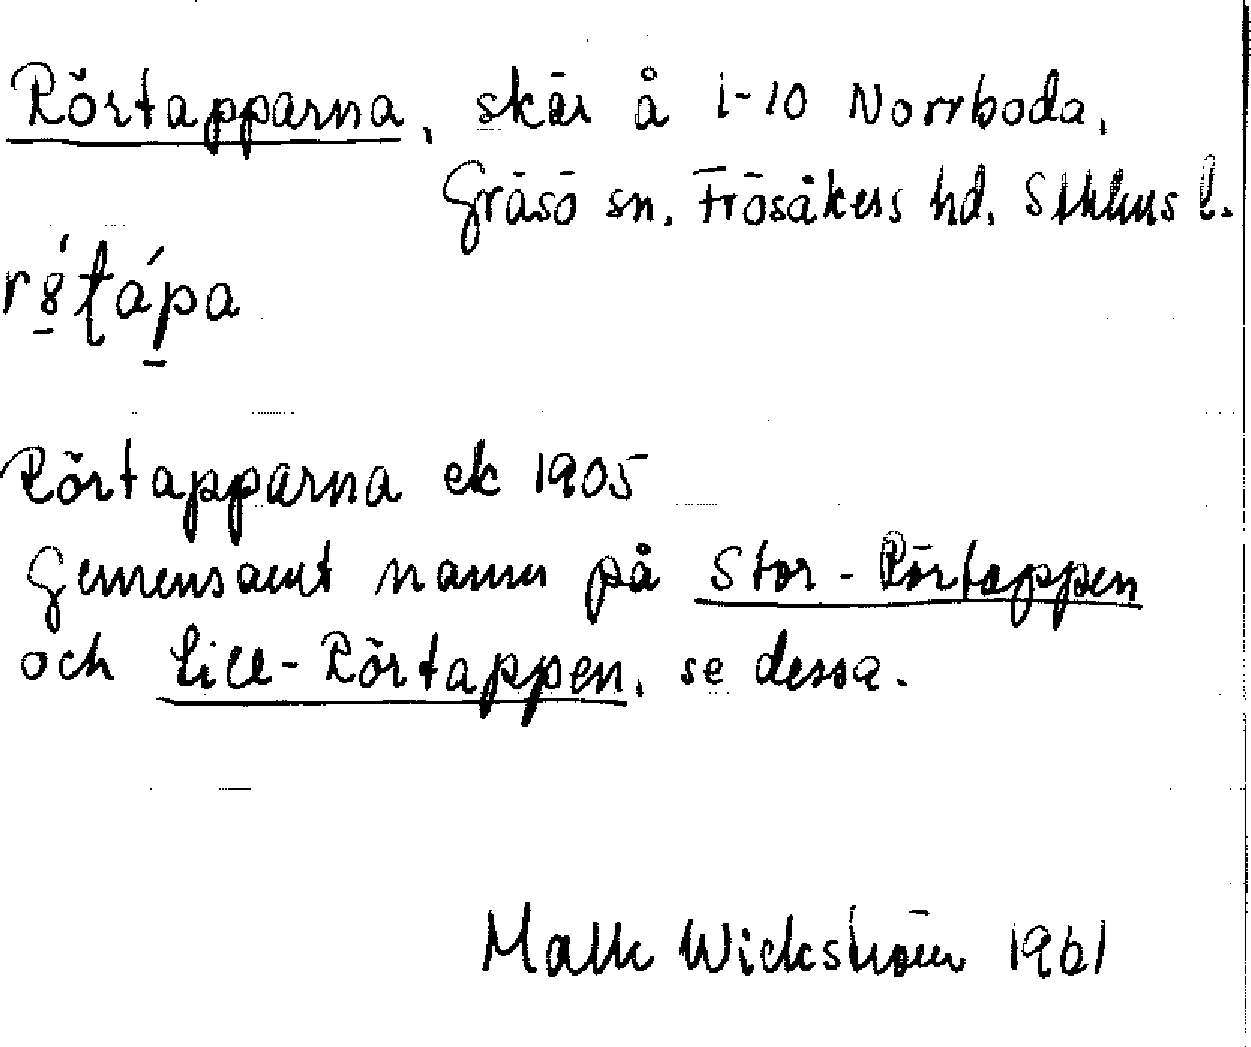 Rörtapparna, skär å 1-10 Norrboda,
Gräsö sn. Frösåkers hd. Sthlms l.
Rörtapparna ek 1905
Gemensamt namn på Stor-Rörtappen
och Lill-Rörtappen, se dessa.
Wickström 1961